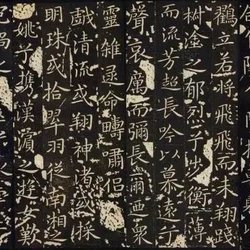 立若將飛而未翔
椒塗之郁烈步衡薄
而流芳超長吟以慕遠兮
聲哀厲而彌長爾乃衆
靈雜遝命疇嘯侶或
戲清流或翔神渚或採
明珠或拾翠羽從南湘之
姚攜漢濱之遊女歎